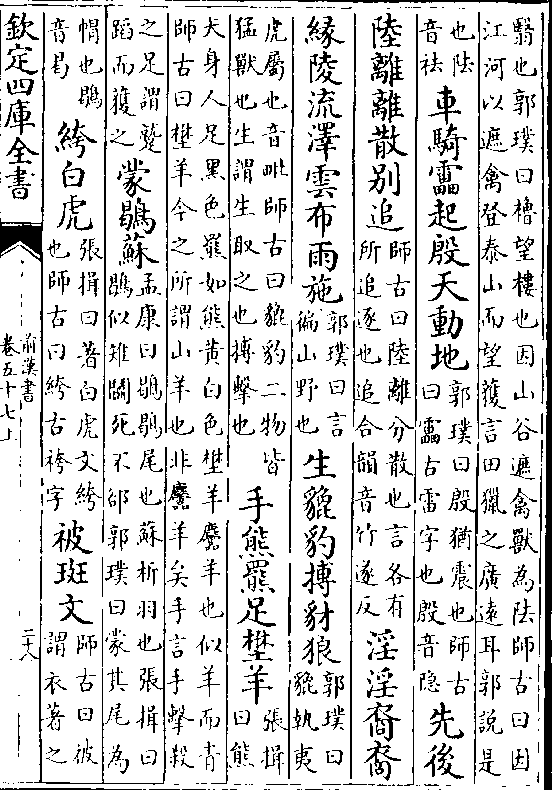 翳也郭璞曰櫓望樓也因山谷遮禽獸為阹師古曰因
江河以遮禽登泰山而望獲言田獵之廣遠耳郭說是
也阹
音祛
車騎靁起殷天動地
郭璞曰殷猶震也師古
曰靁古雷字也殷音隐
先後
陸離離散别追
師古曰陸離分散也言各有
所追逐也追合韻音竹遂反
淫淫裔裔
緣陵流澤雲布雨施
郭璞曰言
徧山野也
生貔豹搏豺狼
郭璞曰
貔執夷
虎屬也音毗師古曰貔豹二物皆
猛獸也生謂生取之也搏擊也
手熊羆足壄羊
張揖
曰熊
犬身人足黑色羆如熊黄白色壄羊麢羊也似羊而青
師古曰壄羊今之所謂山羊也非麢羊矣手言手擊殺
之足謂蹵
蹈而獲之
蒙鶡蘇
孟康曰鶡鶡尾也蘇析羽也張揖曰
鶡似雉鬭死不郤郭璞曰蒙其尾為
帽也鶡
音曷
絝白虎
張揖曰著白虎文絝
也師古曰絝古袴字
被斑文
師古曰被
謂衣著之
欽定四庫全書
前漢書
卷五十七上
二十八